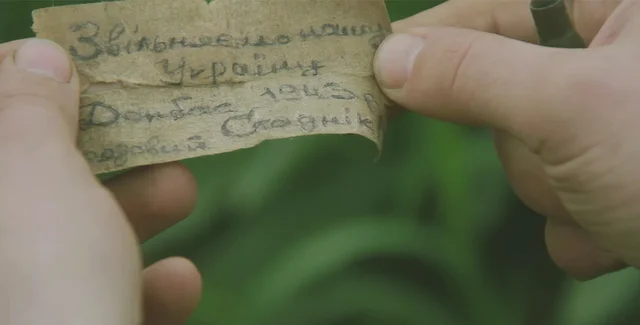 Звільняємо нашу
Україну
Донбас 1943 р
рядовий Скаднік